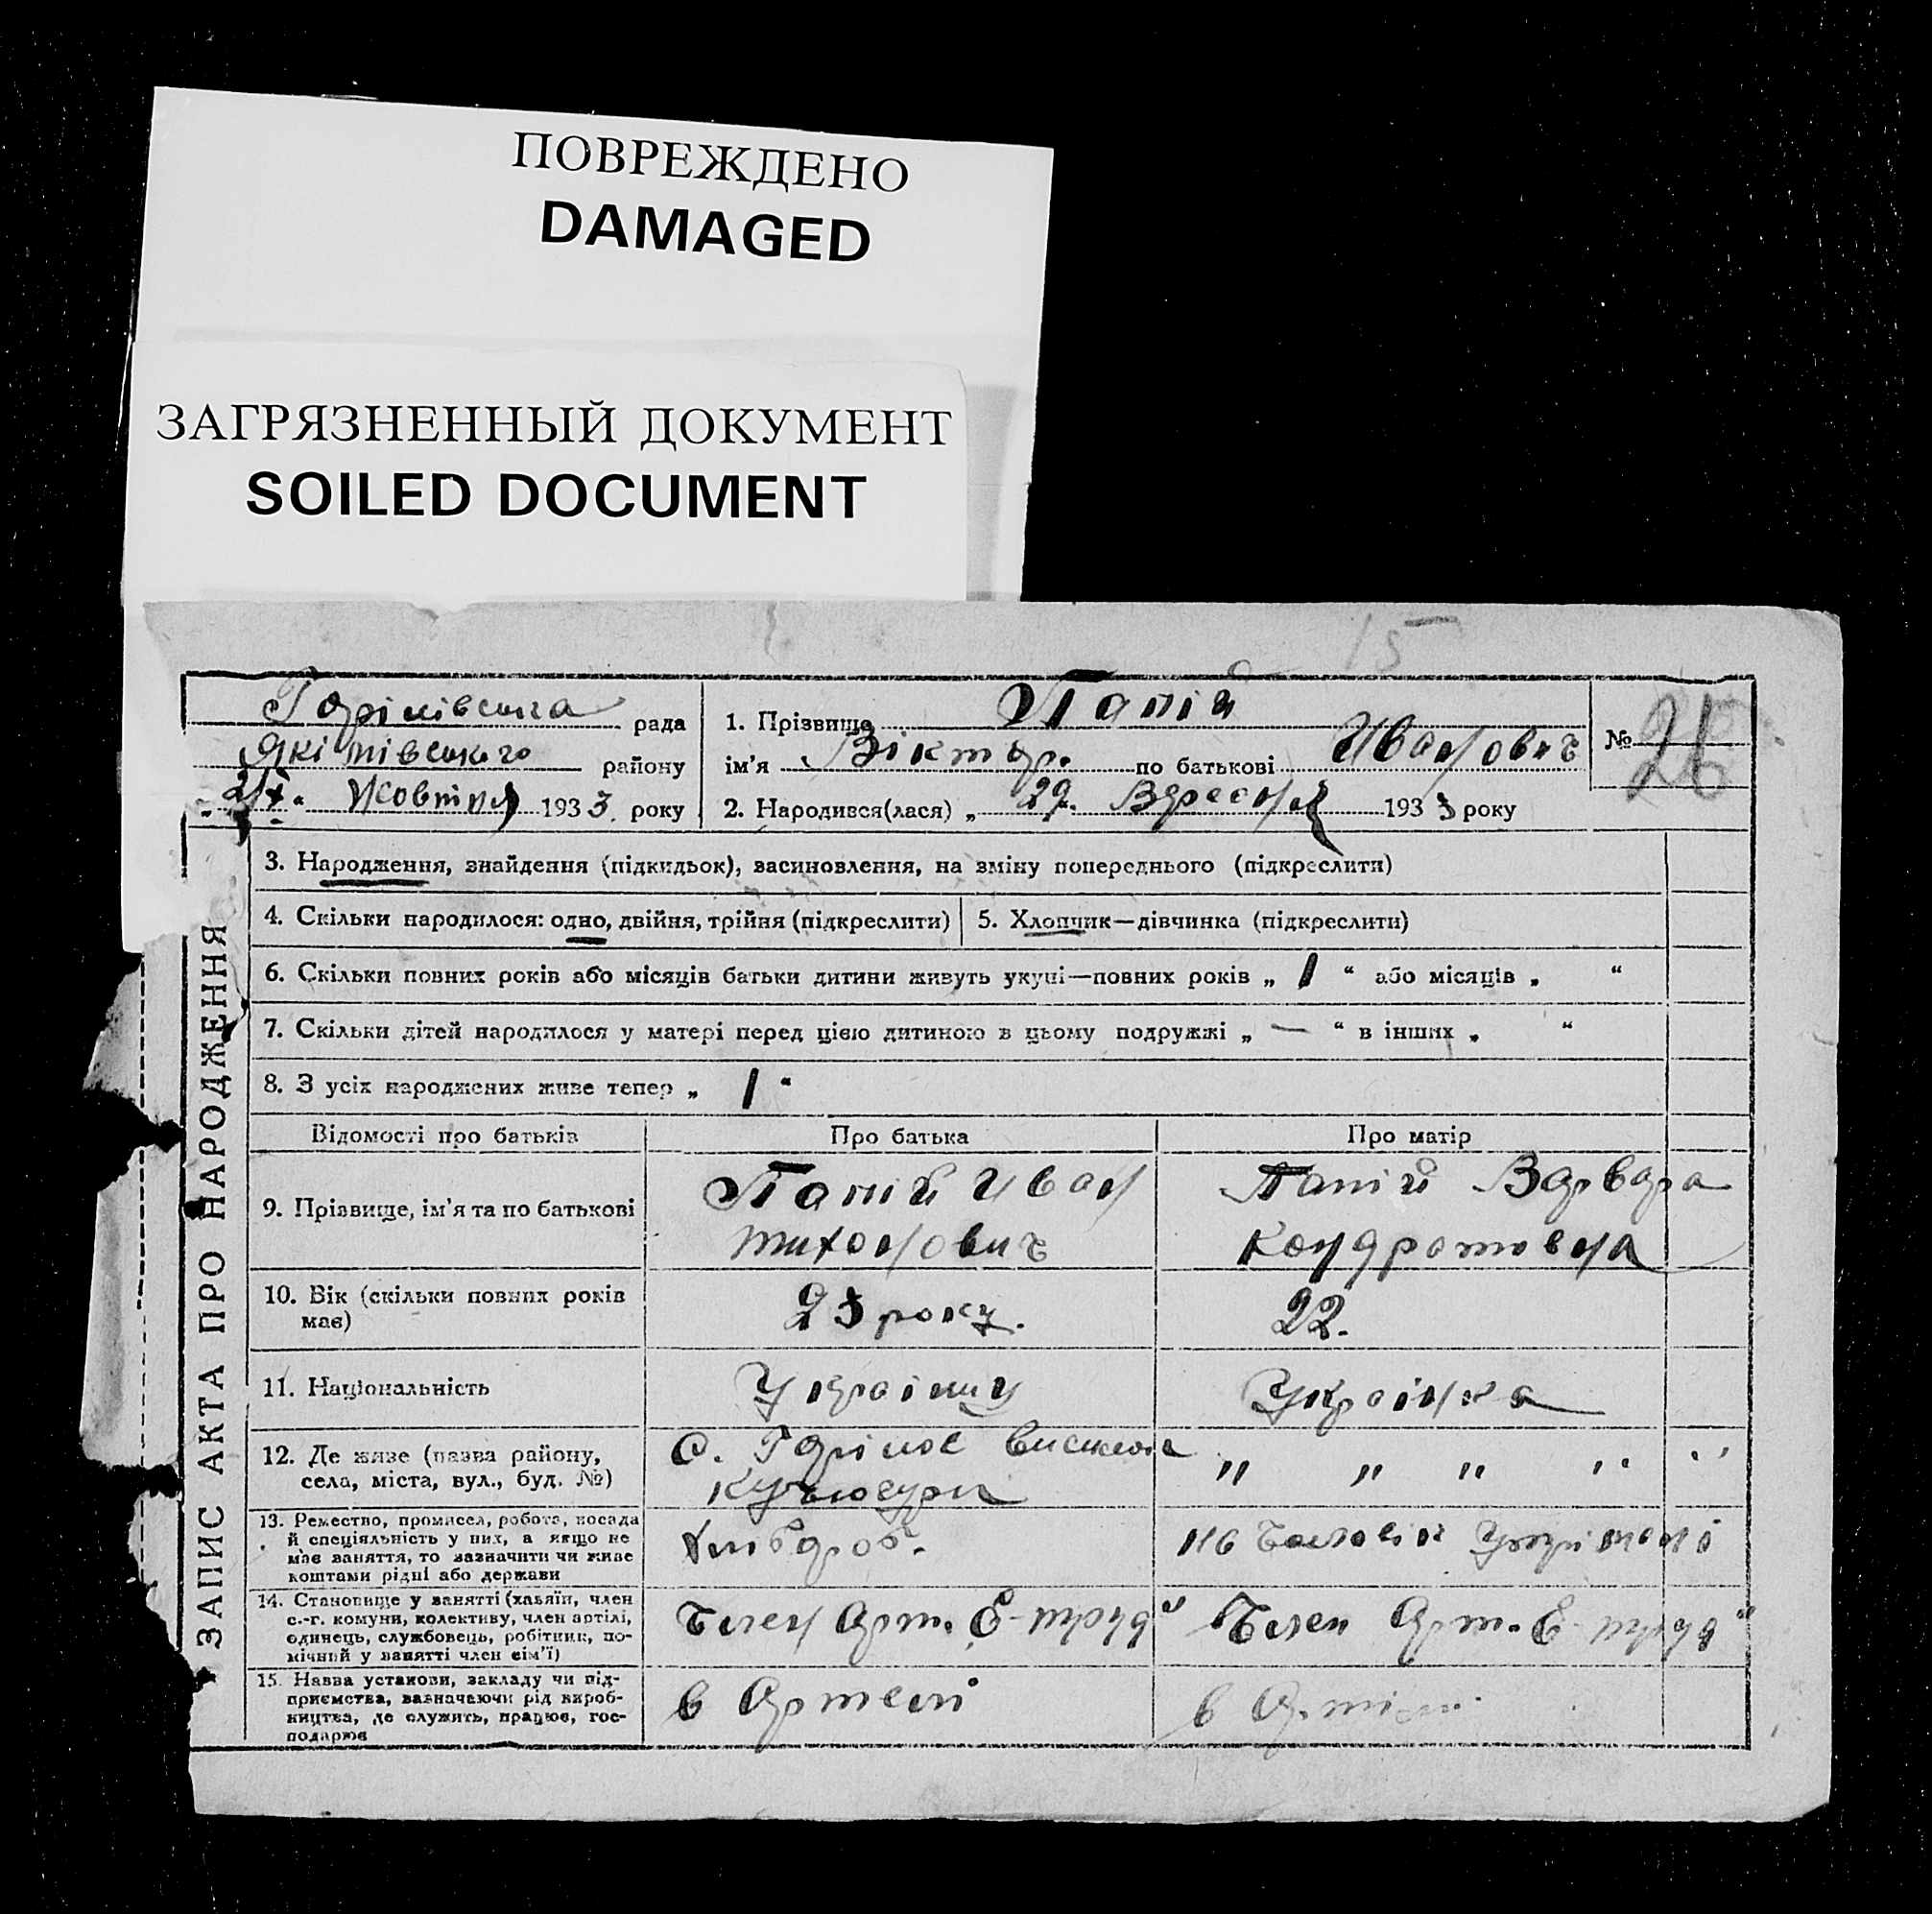 ПОВРЕЖДЕНО
DAMAGED
ЗАГРЯЗНЕННЫЙ ДОКУМЕНТ
SOILED DOCUMENT
15
рада
району
Жовтня 1933. року
1. Прізвище Папій
ім'я Віктор. по батькові Иванович
2. Народився(лася) „ 29. Вересня 1933 року
№ 26
ЗАПИС АКТА ПРО НАРОДЖЕННЯ
3. Народження, знайдення (підкидьок), засиновлення, на зміну попереднього (підкреслити)
4. Скільки народилося: одно, двійня, трійня (підкреслити)
5. Хлопчик—дівчинка (підкреслити)
6. Скільки повних років або місяців батьки дитини живуть укупі—повних років „ 1 “ або місяців „ “
7. Скільки дітей народилося у матері перед цією дитиною в цьому подружжі „ — “ в інших „ “
8. З усіх народжених живе тепер „ 1 “
Відомості про батьків
Про батька
Про матір
9. Прізвище, ім'я та по батькові
Папій Иван
Тихонович
Папій Варвара
Кондратовна
10. Вік (скільки повних років
має)
23 року.
22.
11. Національність
Українц
Українка
12. Де живе (назва району,
села, міста, вул., буд. №)
С. Горілое
" " " " "
13. Ремество, промисел, робота, посада
й спеціяльність у них, а якщо не
має заняття, то зазначити чи живе
коштами рідні або держави
Хлібороб.
14. Становище у занятті (хазяїн, член
с.-г. комуни, колективу, член артілі,
одинець, службовець, робітник, по-
мічний у занятті член сім'ї)
Член Арт.
Член Арт.
15. Назва установи, закладу чи під-
приємства, зазначаючи рід вироб-
ництва, де служить, працює, гос-
подарює
в Артелі
в